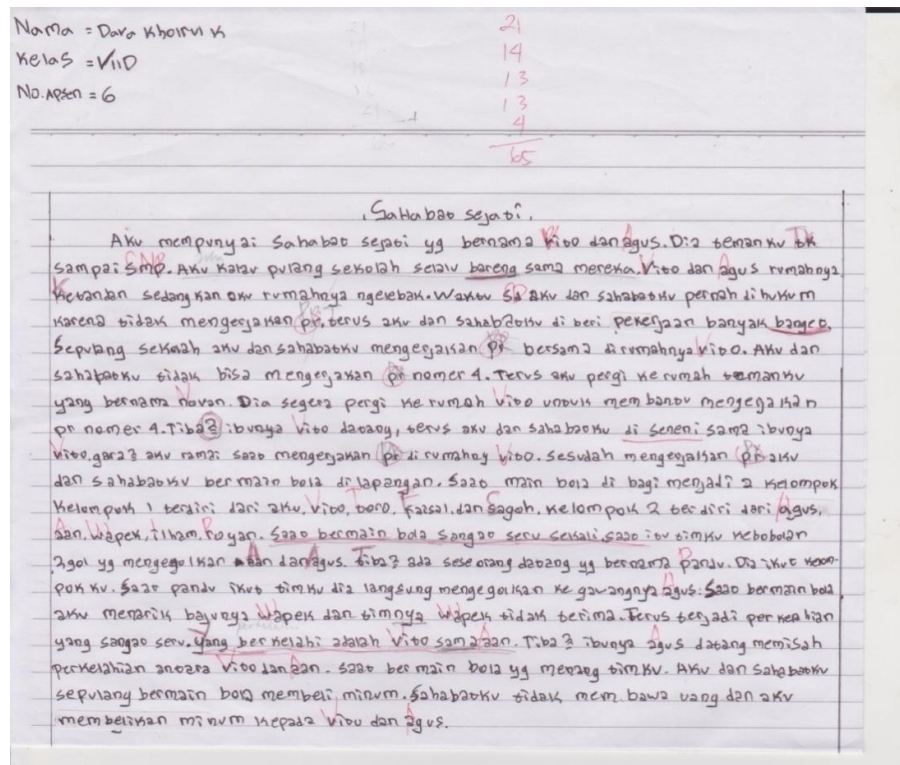 Nama = Dara Khoirul K
Kelas = VIID
No. Apsen = 6
21
14
13
13
4
65
Sahabat sejati.
Aku mempunyai sahabat sejati yg bernama Vito dan Agus. Dia teman ku TK
sampai SMP. Aku kalau pulang sekolah selalu bareng sama mereka. Vito dan Agus rumahnya
Ketandan sedangkan aku rumahnya ngelebak. Waktu SD aku dan sahabatku pernah di hukum
karena tidak mengerjakan pr, terus aku dan sahabatku di beri pekerjaan banyak banget.
Sepulang sekolah aku dan sahabatku mengerjakan pr bersama di rumahnya Vito. Aku dan
sahabatku tidak bisa mengerjakan pr nomer 4. Terus aku pergi ke rumah temanku
yang bernama Novan. Dia segera pergi ke rumah Vito untuk membantu mengerjakan
pr nomer 4. Tiba2 ibunya Vito datang, terus aku dan sahabatku di seneni sama ibunya
Vito, gara2 aku ramai saat mengerjakan pr di rumahny Vito. Sesudah mengerjakan pr aku
dan sahabatku bermain bola di lapangan. Saat main bola di bagi menjadi 2 kelompok
Kelompok 1 terdiri dari aku, Vito, Toro, Faisal, dan Sagoh. Kelompok 2 terdiri dari Agus,
Aan, Wapek, Ilham, Royan. Saat bermain bola sangat seru sekali, saat itu timku kebobolan
2 gol yg mengegolkan Aan dan Agus. Tiba2 ada seseorang datang yg bernama Pandu. Dia ikut kelom-
pok ku. Saat pandu ikut timku dia langsung mengegolkan ke gawangnya Agus. Saat bermain bola
aku menarik bajunya Wapek dan timnya Wapek tidak terima. Terus terjadi perkelahian
yang sangat seru. Yang berkelahi adalah Vito sama Aan. Tiba2 ibunya Agus datang memisah
perkelahian antara Vito dan Aan. Saat bermain bola yg menang timku. Aku dan sahabatku
sepulang bermain bola membeli minum. Sahabatku tidak mem bawa uang dan aku
membelikan minum kepada Vito dan Agus.